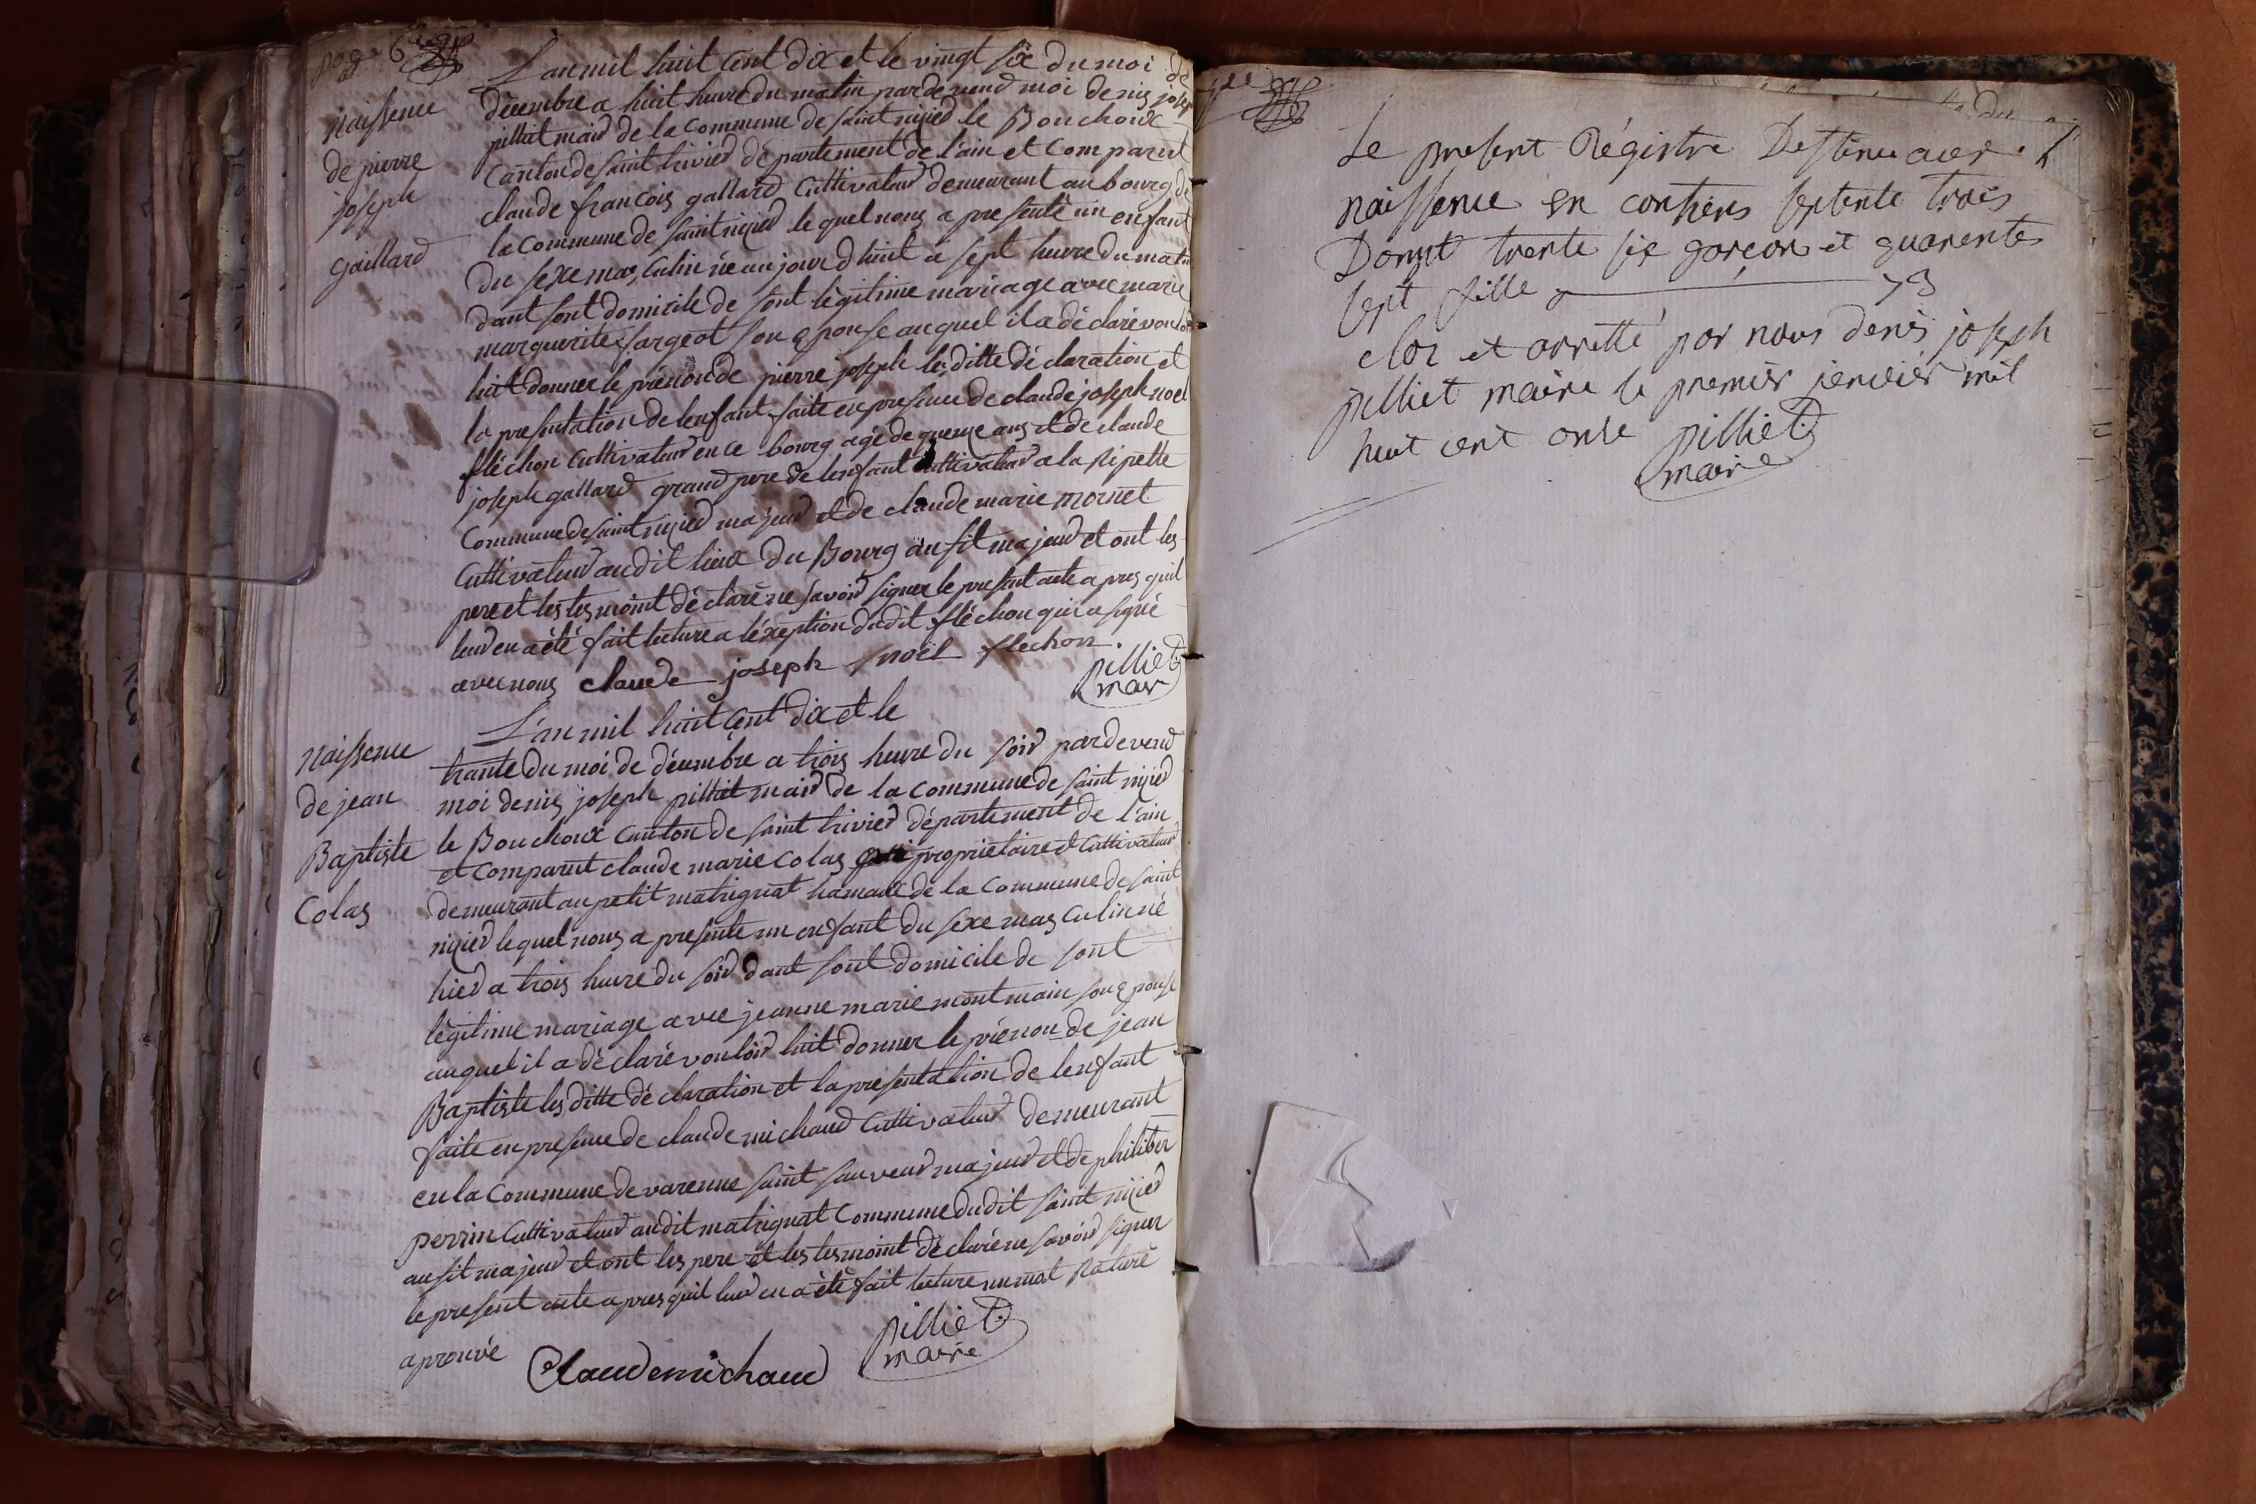 page 6
Naissence
de pierre
joseph
gaillard
L'an mil huit cent dix et le vingt six du moi de
décembre a huit heure du matin pardevend moi denis joseph
pilliat maire de la commune de saint nizied le Bouchoux
canton de saint trivied département de l'ain et comparut
claude françois gallard cultivateur demeurant au bourg de
la commune de saint nizied le quel nous a presenté un enfant
du sexe mas culin né au jour d huit a sept heure du matin
dant sont domicile de sont légitime mariage avec marie
marguerite fargeot son epouse au quel il a déclaré vouloir
luit donner le prénon de pierre joseph les ditte déclaration et
la presentation de lenfant faite en presence de claude joseph noel
fléchon cultivateur en ce bourg agé de quenze ans et de claude
joseph gallard grand pere de lenfant cultivateur a la ripette
commune de saint nizied majeur et de claude marie mornet
cultivateur audit lieux du Bourg ausit majeur et ont les
pere et les tesmoint déclaré ne savoir signer le present acte apres quil
leur en a été fait lecture a léxeption dudit fléchon qui a signé
avec nous claude joseph noël flechon.
pilliet
mair
Naissence
de jean
Baptiste
Colas
L'an mil huit cent dix et le
trante du moi de décembre a trois heure du soir pardevend
moi denis joseph pilliat mair de la commune de saint nizied
le Bouchoux canton de saint trivied département de l'ain
et comparut claude marie colas propriétaire et cultivateur
demeurant au petit matrignat hamaux de la commune de saint
nizied le quel nous a presenté un enfant du sexe mas culin né
hier a trois heure du soir dant sont domicile de sont
légitime mariage avec jeanne marie montmain son epouse
auquel il a déclaré vouloir luit donner le prénon de jean
Baptiste les ditte déclaration et la présentation de lenfant
faite en presence de claude michaud cultivateur demeurant
en la commune de varenne saint sauveur majeur et de philiber
perrin cultivateur audit matrignat commune dudit saint nizied
ausit majeur et ont les pere et les tesmoint déclaré ne savoir signer
le present acte apres quil leur en a été fait lecture un mot raturé
aprouvé
Claude michaud
pilliet
maire
Le present Régistre Destine aux
naissence en contiens septente trois
Donnt trente six garçon et quarente
sept fille 73
clos et arretté par nous denis joseph
pilliet maire le premier jenvier mil
huit cent onse pilliet
maire